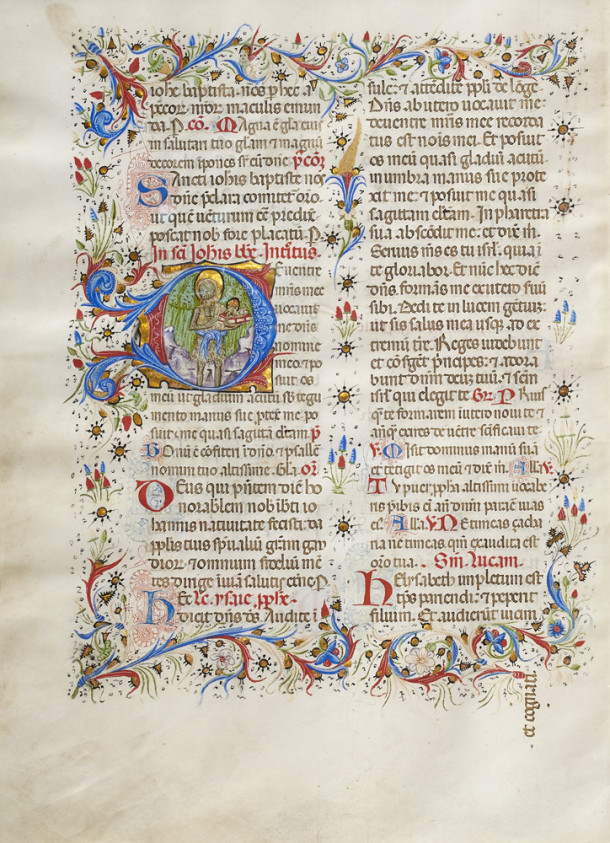 iohe baptista. nos p̱ hec a
peccorͫ nr̄orͫ maculis emun
da. P. cō. Magna ē gla eius
in salutari tuo glam & magnū
decorem ipones sr̄ eū dn̄e. p̄ cōr
Sancti iohis baptiste nos
dn̄e p̄clara comitet̄ orō.
ut quē uēturum ēē predix
poscat nob̄ fore placatū. P.
In sc̄i Iohis bt̄e. Introitus.
De uentre
mr̄is mee
uocauit
me dn̄s
nomine
meo. & po
suit os
meū ut gladium acutū sb̄ tegu
mento manus sue p̱texit me. po
suit me quasi sagittā el̄tam. p̄
Bonū ē confiteri dn̄o. & psallē
nomini tuo altissime. Gl̄a. or̄
Deus qui pn̄tem diē ho
norabilem nob̄ i bt̄i io
hannis natiuitate fecisti. da
ppl̄is tuis spūalium gr̄am gau
diorͫ. & omnium fidelium mē
tes dirige in uiā salutis etn̄e. P.
Hec. Lc̄. ysaie. pp̄he.
dicit dn̄s d̄s. Audite i
sule. & attēdite ppl̄i de lōge
Dn̄s ab utero uocauit me.
de uentre mr̄is mee recorda
tus est nois mei. Et posuit
os meū quasi gladiū acutū.
in umbra manus sue prote
xit me. & posuit me quasi
sagittam el̄tam. In pharetra
sua abscōdit me. et dix̄ m̄.
Seruus ms̄ es tu isrl̄. quia ī
te gloriabor. Et nūc hec dic̄
dn̄s. formās me ex utero suū
sibi. Dedi te in lucem gētiūz.
ut sis salus mea usqꝫ ad ex
tremū tr̄e. Reges uidebunt
et cōsurgēt pͥncipes. & adora
bunt dn̄m deūz tuū. & sc̄m
isrl̄ qui elegit te. Gr̄. Priusqꝫ
te formarem i utero noui te. &
anq̄ exires de uētre sc̄ificaui te.
℣. Misit dominus manū suā
et tetigit os meū & dix̄ m̄. Alla. ℣.
Tu puer pp̄ha altissimi uocabe
ris p̱ibis ei an̄ dn̄m parare uias
eiꝰ. Alla. ℣. Ne timeas çacha
ria ne timeas. qm̄ exaudita est
orō tua. Sm̄. Lucam.
Helysabeth impletum est
tp̄s pariendi. & peperit
filium. Et audierūt uicini
et cognati